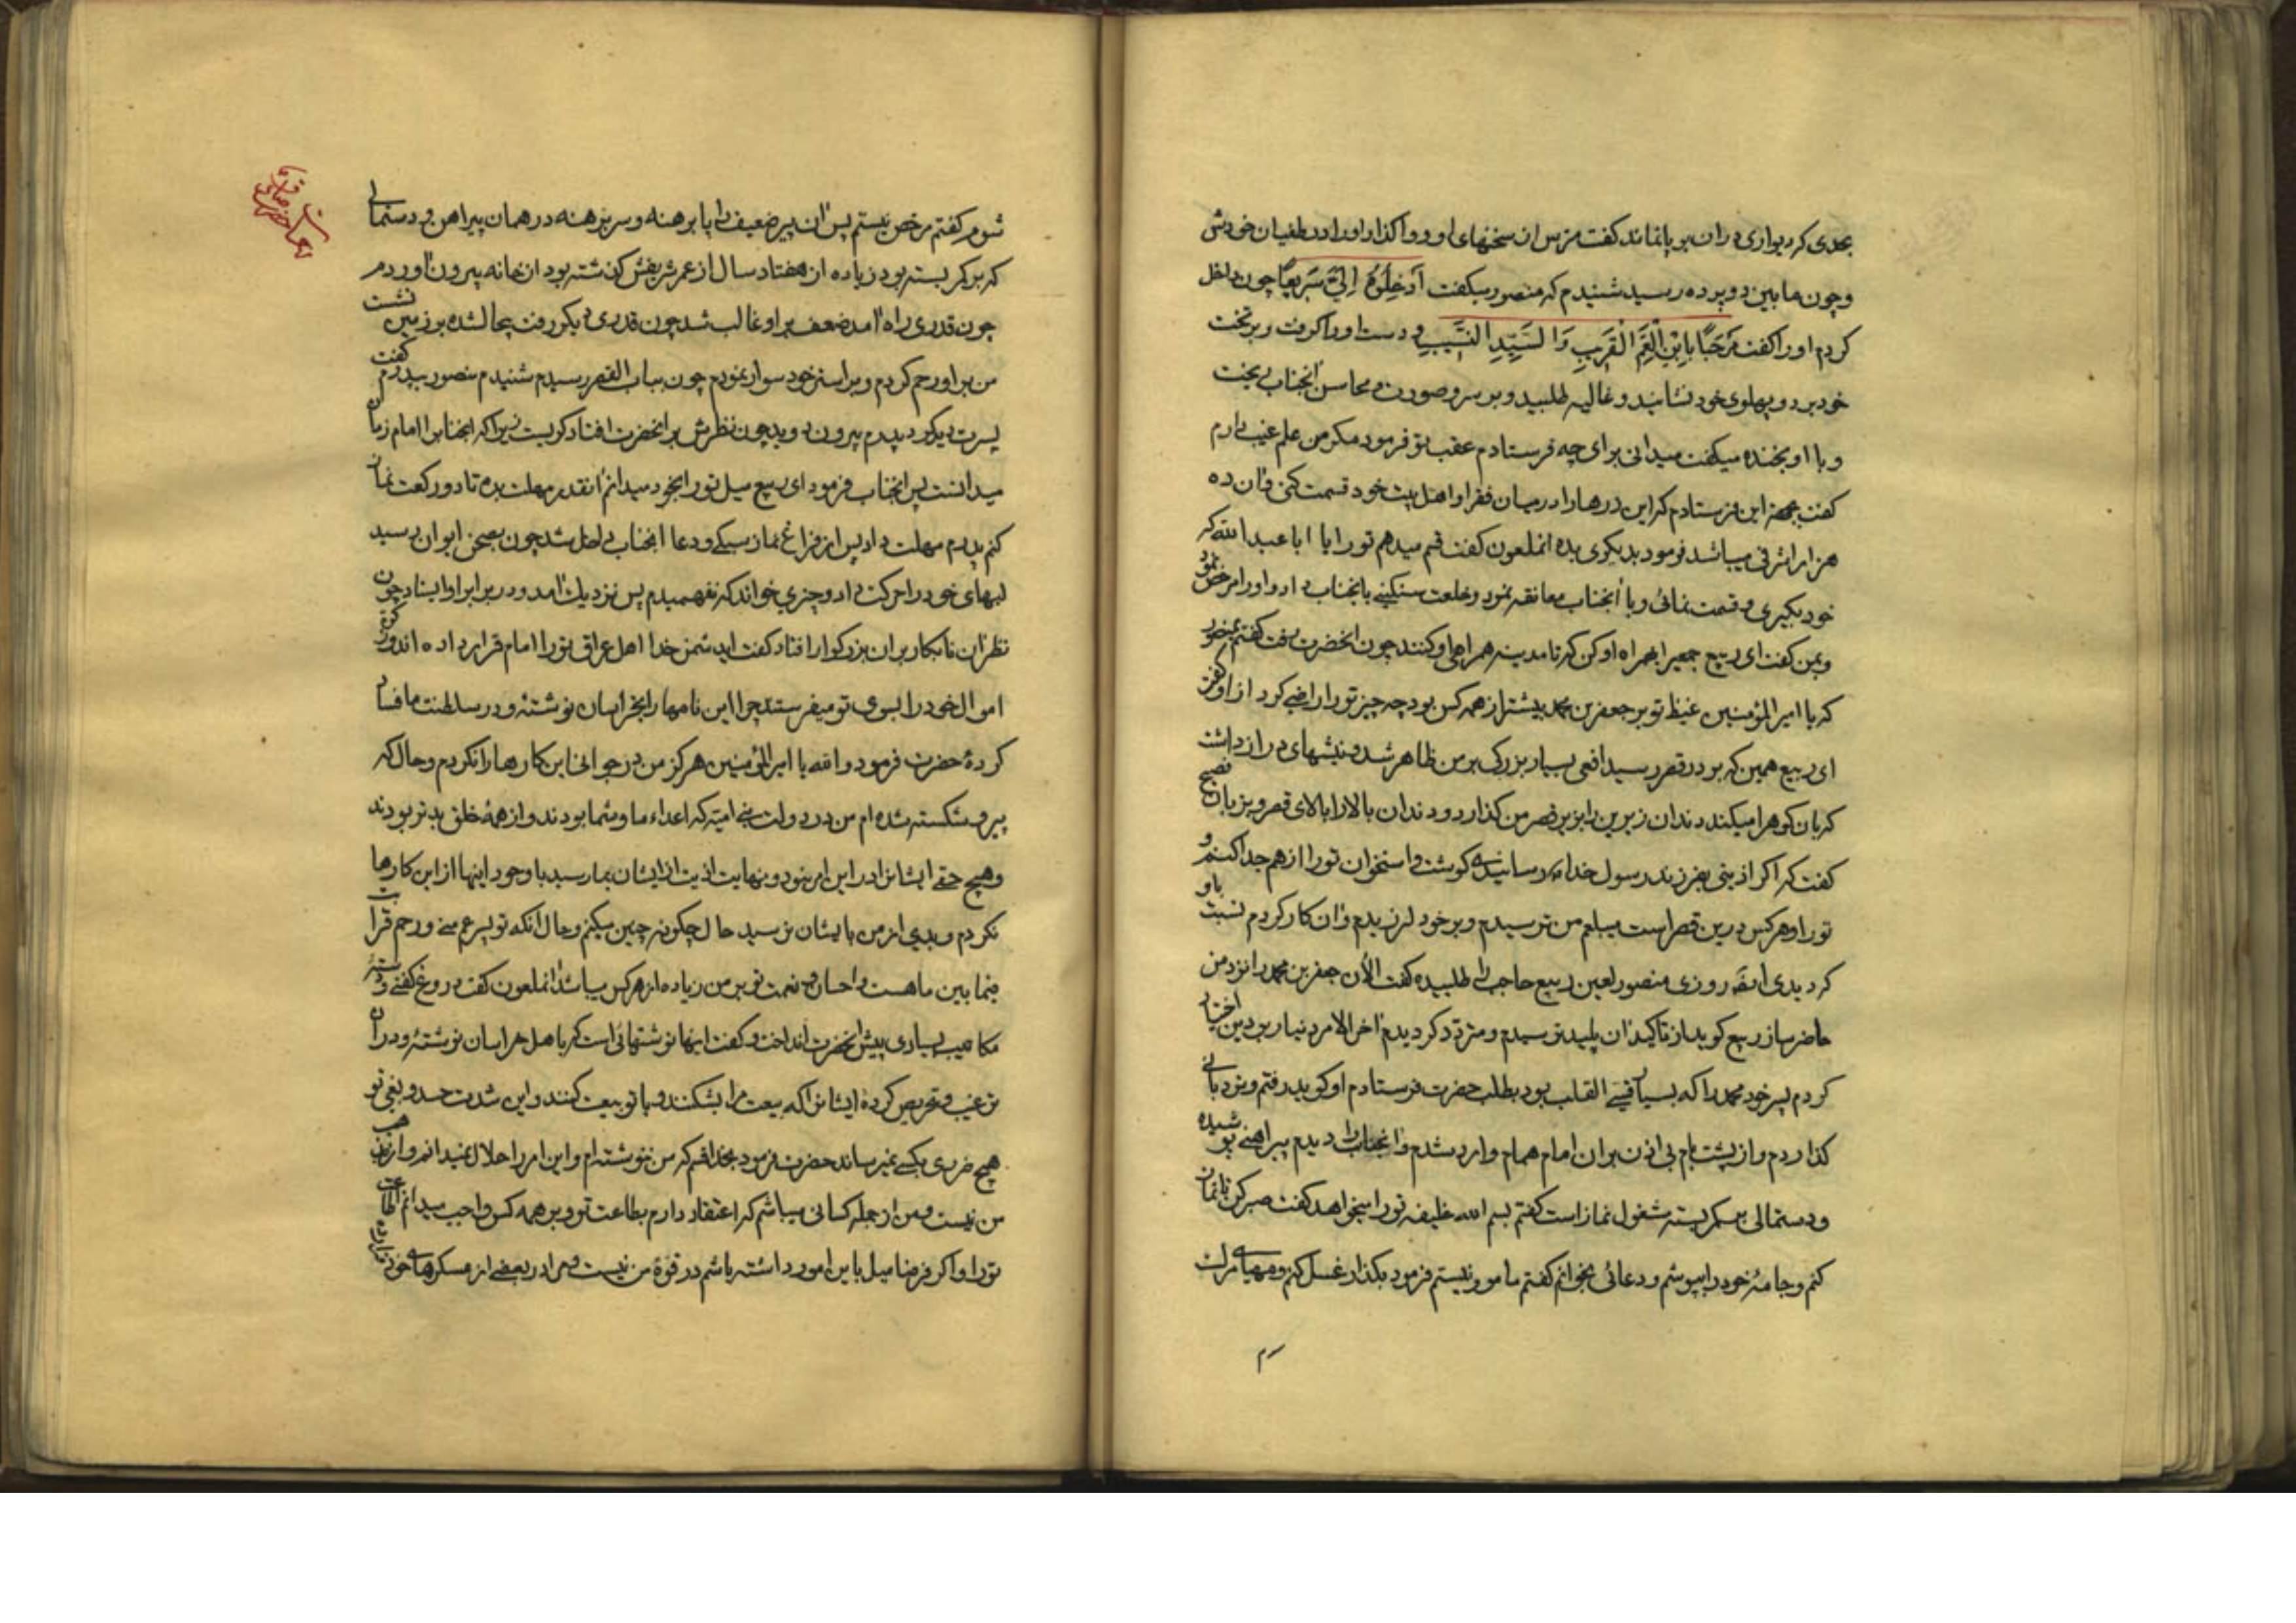 بحدی که دیواری در ان بر پا نماند گفت مترس از سخنهای او و واگذار او را در طغیان خودش
و چون مابین دو پرده رسید شنیدم که منصور میگفت اَدخِلُوهُ اِلَیَّ سَریعًا چون داخل
کردم او را گفت مَرحَبًا بِابنِ العَمِّ القَریبِ وَالسَّیِّدِ النَّسیبِ و دست او را گرفت و بر تخت
خود برد و پهلوی خود نشانید و غالیه طلبید و بر سر و صورت و محاسن آنجناب ریخت
و با او بخنده میگفت میدانی برای چه فرستادم عقب تو فرمود مگر من علم غیب دارم
گفت بجهة این فرستادم که این درهها را در میان فقرا و اهل بیت خود قسمت کنی و آن ده
هزار اشرفی میباشد فرمود بدیگری بده انملعون گفت قسم میدهم تو را یا ابا عبدالله که
خود بگیری و قسمت نمائی و با آنجناب معانقه نمود و خلعت سنگینی بآنجناب داد و او را مرخص نمود
و بمن گفت ای ربیع جمعیرا همراه او کن که تا مدینه همراهی او کنند چون آنحضرت رفت گفتم بمنصور
که یا امیرالمؤمنین غیظ تو بر جعفر بن محمد بیشتر از همه کس بود چه چیز تو را راضی کرد از او گفت
ای ربیع همین که بر در قصر رسید افعی بسیار بزرگ بر من ظاهر شد و نیشهای دراز داشت
که بان کوهرا میکند دندان زیرین را بزیر قصر من گذارد و دندان بالا را بالای قصر و بزبان فصیح
گفت که اگر اذیتی بفرزند رسول خدا رسانیدی گوشت و استخوان تو را از هم جدا کنم و
تو را و هر کس درین قصر است میبلعم من ترسیدم و بر خود لرزیدم و آن کار کردم نسبت باو
که دیدی روزی منصور لعین ربیع حاجب را طلبیده گفت الآن جعفر بن محمد را نزد من
حاضر ساز ربیع گوید از تاکید آن پلید ترسیدم و متردد گردیدم آخر الامر دنیا را بر دین اختیار
کردم پسر خود محمد را که بسیار قسی القلب بود بطلب حضرت فرستادم او گوید رفتم و نردبانی
گذاردم و از پشت بام بی اذن بر آن امام همام وارد شدم و آنجناب را دیدم پیراهنی پوشیده
و دستمالی بر کمر بسته مشغول نماز است گفتم بسم الله خلیفه تو را میخواهد گفت صبر کن تا نماز
کنم و جامهٔ خود را بپوشم و دعائی بخوانم گفتم مامور نیستم فرمود بگذار غسل کنم و مهیای مرگ
شوم گفتم مرخص نیستم پس آن پیر ضعیف را پا برهنه و سر برهنه در همان پیراهن و دستمالی
که بر کمر بسته بود زیاده از هفتاد سال از عمر شریفش گذشته بود از خانه بیرون آوردم
چون قدری راه آمد ضعف بر او غالب شد چون قدری دیگر رفت بیحال شده بر زمین نشست
من بر او رحم کردم و بر استر خود سوار نمودم چون بباب القصر رسیدم شنیدم منصور بپدرم گفت
پسرت دیر کرد پدرم بیرون دوید چون نظرش بر آنحضرت افتاد گریست زیرا که آنجناب را امام زمان
میدانست پس آنجناب فرمود ای ربیع میل تو را بخود میدانم آنقدر مهلت بده تا دو رکعت نماز
کنم پدرم مهلت داد پس از فراغ نماز سبکی و دعا آنجناب داخل شد چون بصحن ایوان رسید
لبهای خود را حرکت داد و چیزی خواند که نفهمیدم پس نزدیک آمد و در برابر او ایستاد چون
نظر آن نابکار بر آن بزرگوار افتاد گفت ای دشمن خدا اهل عراق تو را امام قرار داده اند و زکوة
اموال خود را بسوی تو میفرستند چرا این نامها را بخراسان نوشتهٔ و در سلطنت ما فساد
کردهٔ حضرت فرمود والله یا امیرالمؤمنین هرگز من در جوانی این کارها را نکردم و حال که
پیر و شکسته شده ام من در دولت بنی امیه که اعداء ما و شما بودند و از همهٔ خلق بدتر بودند
و هیچ حقی ایشانرا در این امر نبود و نهایت اذیت از ایشان بما رسید با وجود اینها از این کارها
نکردم و بدی از من بایشان نرسید حال چگونه چنین میکنم و حال آنکه تو پسر عم منی و رحم قرابت
فیما بین ما هست و احسان و نعمت تو بر من زیاده از هر کس میباشد انملعون گفت دروغ گفتی و دسته
مکاتیب بسیاری پیش آنحضرت انداخت و گفت اینها نوشتهائی است که باهل خراسان نوشتهٔ و در آن
ترغیب و تحریص کردهٔ ایشانرا که بیعت مرا بشکنند و با تو بیعت کنند و این شدت حسد و بغی تو
هیچ ضرری بکسی نمیرساند حضرت فرمود بخدا قسم که من ننوشته ام و این امر را حلال نمیدانم و از مذهب
من نیست و من از جمله کسانی میباشم که اعتقاد دارم بطاعت تو و بر همه کس واجب میدانم اطاعت
تو را و اگر فرضا میل باین امور داشته باشم در قوهٔ من نیست و مرا در بعضی از عسکرهای خود